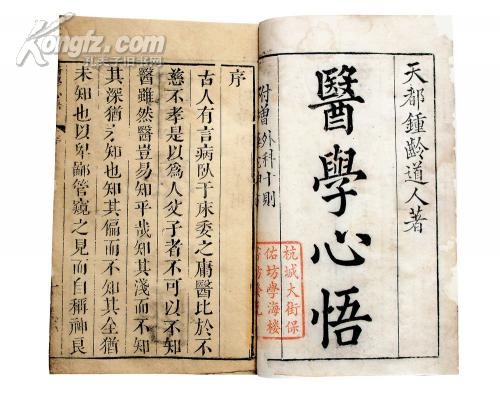 Kongfz.com
孔夫子旧书网
天都鍾齡道人著
醫學心悟
附增外科十則
杭城大街保
佑坊學海樓
序
古人有言病臥于床委之庸醫比於不
慈不孝是以為人父子者不可以不知
醫雖然醫豈易知乎哉知其淺而不知
其深猶未知也知其偏而不知其全猶
未知也以卑鄙管窺之見而自稱神良